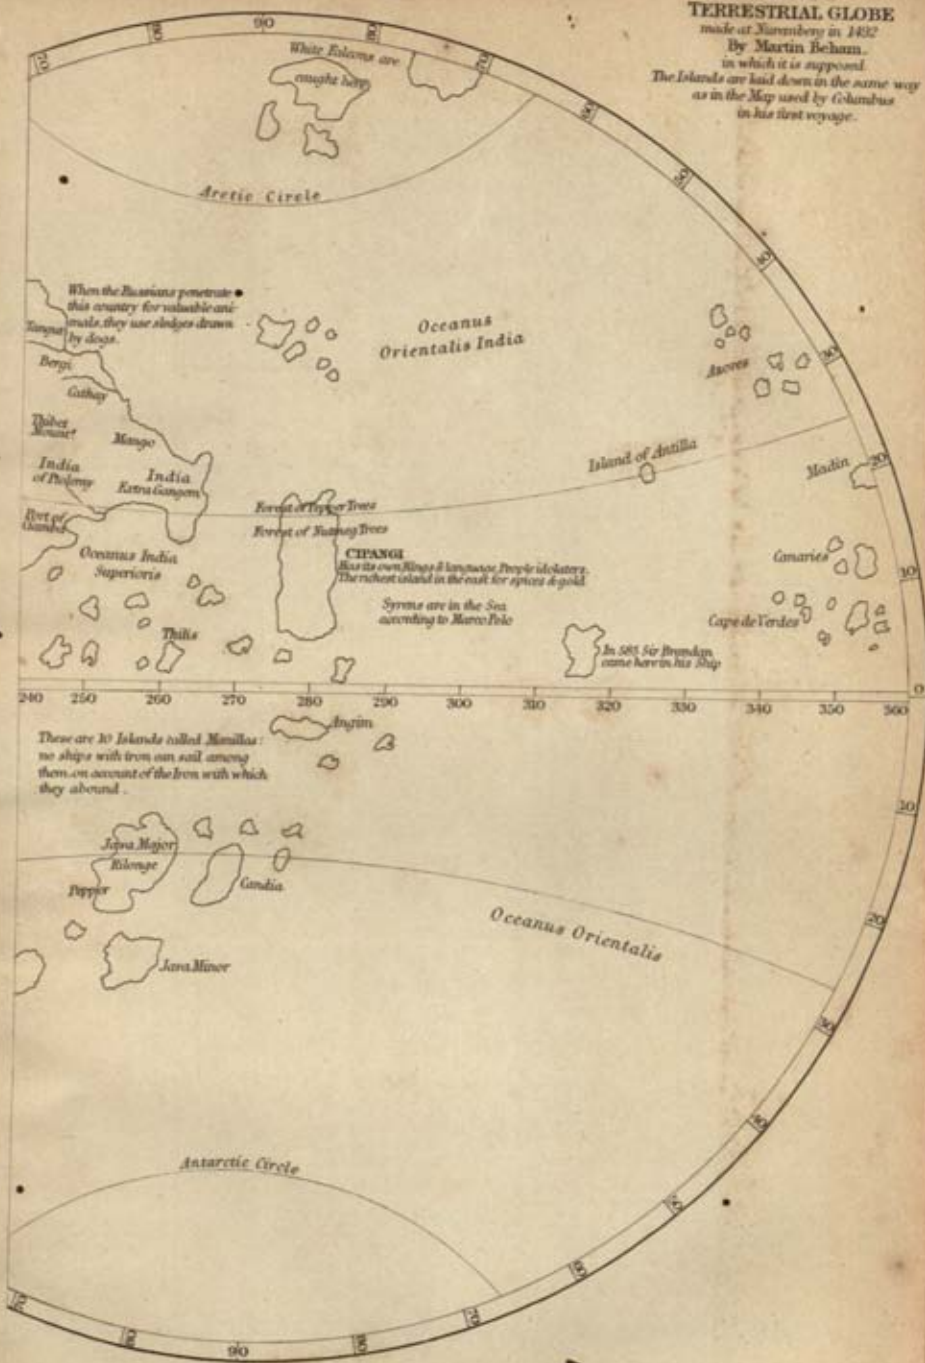 TERRESTRIAL GLOBE
made at Nuremberg in 1492
By Martin Beham.
in which it is supposed
The Islands are laid down in the same way
as in the Map used by Columbus
in his first voyage.
70
80
90
80
70
60
50
40
30
20
10
0
10
20
30
40
50
60
70
80
90
80
70
White Falcons are
caught here
Arctic Circle
When the Russians penetrate
this country for valuable ani-
mals, they use sledges drawn
by dogs.
Tangut
Bergi
Cathay
Thibet
Mount?
Mango
India
of Ptolemy
India
Extra Gangem
Port of
Oceanus India
Superioris
Thilis
Oceanus
Orientalis India
Azores
Island of Antilla
Madin
Forest of Pepper Trees
Forest of Nutmeg Trees
CIPANGI
Has its own Kings & language, People idolaters.
The richest island in the east for spices & gold
Syrens are in the Sea
according to Marco Polo
Canaries
Cape de Verdes
In 585 Sir Brandan
came here in his Ship
240 250 260 270 280 290 300 310 320 330 340 350 360
These are 10 Islands called Manillas:
no ships with iron can sail among
them, on account of the Iron with which
they abound.
Angim
Java Major
Rilonge
Pepper
Candia
Java Minor
Oceanus Orientalis
Antarctic Circle